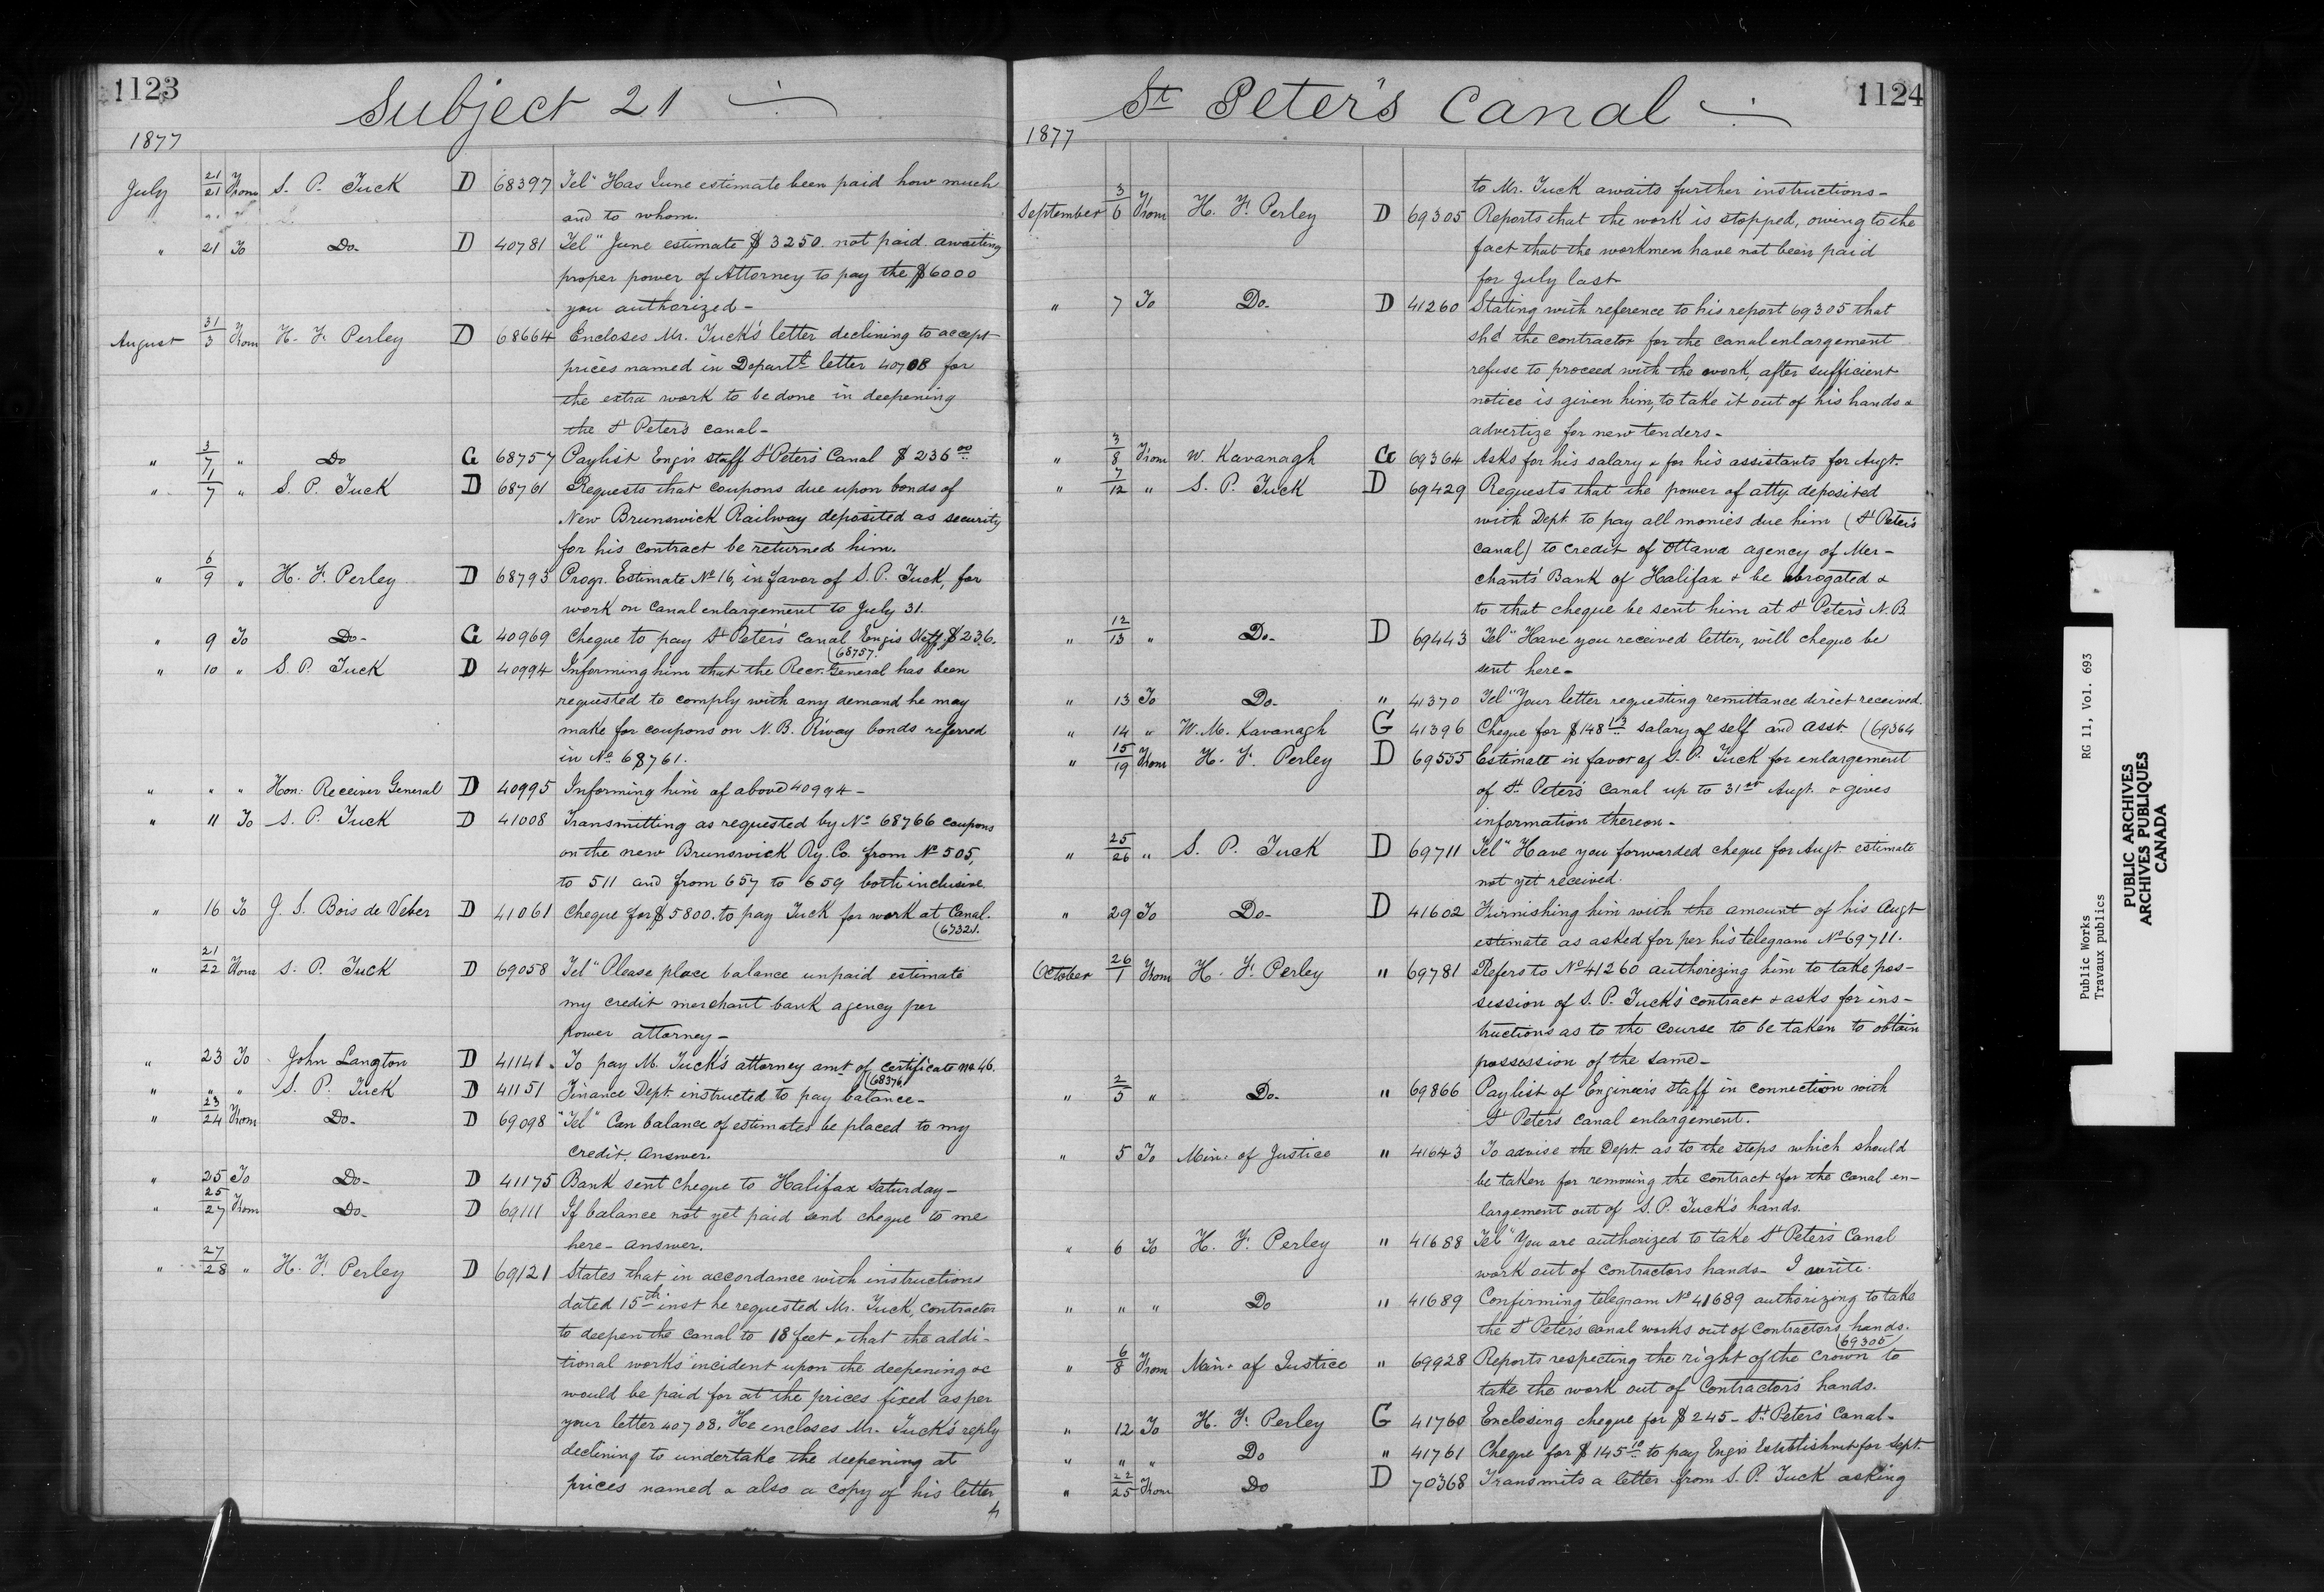 1123
Subject 21
1877
July 21/21 From S. P. Tuck D 68397 Tel" Has June estimate been paid how much
and to whom.
" 21 To Do- D 40781 Tel" June estimate $3250. not paid awaiting
proper power of Attorney to pay the $6000
you authorized-
August 31/3 From H. F. Perley D 68664 Encloses Mr. Tuck's letter declining to accept
prices named in Departt. letter 40708 for
the extra work to be done in deepening
the St Peter's canal-
" 3/7 " Do G 68757 Paylist Engrs staff St Peters' Canal $236 00
" 1/7 " S. P. Tuck D 68761 Requests that coupons due upon bonds of
New Brunswick Railway deposited as security
for his contract be returned him.
" 6/9 " H. F. Perley D 68793 Progr. Estimate No 16, in favor of S. P. Tuck, for
work on canal enlargement to July 31.
" 9 To Do- G 40969 Cheque to pay St Peter's canal Engrs Staff $236.
(68757.
" 10 " S. P. Tuck D 40994 Informing him that the Recr. General has been
requested to comply with any demand he may
make for coupons on N. B. R'way bonds referred
in No 68761.
" " " Hon: Receiver General D 40995 Informing him of above 40994-
" 11 To S. P. Tuck D 41008 Transmitting as requested by No 68766 coupons
on the new Brunswick Ry. Co. from No 505,
to 511 and from 657 to 659 both inclusive.
" 16 To J. S. Bois de Veber D 41061 Cheque for $5800. to pay Tuck for work at Canal.
" 21/22 From S. P. Tuck D 69058 Tel" Please place balance unpaid estimate
my credit merchant bank agency per
power attorney-
" 23 To John Langton D 41141. To pay M. Tuck's attorney amt of certificate no
(68376
" " " S. P. Tuck D 41151 Finance Dept. instructed to pay balance-
" 23/24 From Do- D 69098 "Tel" Can balance of estimates be placed to my
credit. Answer.
" 25 To Do- D 41175 Bank sent cheque to Halifax Saturday-
" 25/27 From Do- D 69111 If balance not yet paid send cheque to me
here- answer.
" 27/28 " H. F. Perley D 69121 States that in accordance with instructions
dated 15th inst he requested Mr. Tuck, contractor
to deepen the canal to 18 feet & that the addi-
tional works incident upon the deepening &c
would be paid for at the prices fixed as per
your letter 40708. He encloses Mr. Tuck's reply
declining to undertake the deepening at
prices named & also a copy of his letter
1124
St Peter's Canal
1877
to Mr. Tuck awaits further instructions-
September 3/6 From H. F. Perley D 69305 Reports that the work is stopped, owing to the
fact that the workmen have not been paid
for July last-
" 7 To Do- D 41260 Stating with reference to his report 69305 that
shd the contractor for the canal enlargement
refuse to proceed with the work, after sufficient
notice is given him, to take it out of his hands &
advertize for new tenders-
" 3/8 From W. Kavanagh G 69364 Asks for his salary & for his assistants for Augt.
" 7/12 " S. P. Tuck D 69429 Requests that the power of atty deposited
with Dept. to pay all monies due him (St Peter's
canal) to credit of Ottawa agency of Mer-
chants' Bank of Halifax & be abrogated &
to that cheque be sent him at St Peter's N. B.
" 12/13 " Do- D 69443 Tel" Have you received letter, will cheque be
sent here-
" 13 To Do- " 41370 Tel" Your letter requesting remittance direct received.
" 14 " W. M. Kavanagh G 41396 Cheque for $148 13 salary of self and asst. (69364
" 15/19 From H. F. Perley D 69555 Estimate in favor of S. P. Tuck for enlargement
of St. Peter's Canal up to 31st Augt. & gives
information thereon-
" 25/26 " S. P. Tuck D 69711 Tel" Have you forwarded cheque for Augt. estimate
not yet received.
" 29 To Do- D 41602 Furnishing him with the amount of his Augt
estimate as asked for per his telegram No 69711.
October 26/1 From H. F. Perley " 69781 Refers to No 41260 authorizing him to take pos-
session of S. P. Tuck's contract & asks for ins-
tructions as to the course to be taken to obtain
possession of the same-
" 2/5 " Do- " 69866 Paylist of Engineer's staff in connection with
St Peter's canal enlargement.
" 5 To Min: of Justice " 41643 To advise the Dept. as to the steps which should
be taken for removing the contract for the canal en-
largement out of S. P. Tuck's hands.
" 6 To H. F. Perley " 41688 Tel" You are authorized to take St Peter's Canal
work out of contractors hands- I write.
" " " Do " 41689 Confirming telegram No 41689 authorizing to take
the St Peter's canal works out of contractors hands.
(69305/
" 6/8 From Min: of Justice " 69928 Reports respecting the right of the Crown to
take the work out of Contractor's hands.
" 12 To H. F. Perley G 41760 Enclosing cheque for $245- St. Peter's Canal-
" " " Do " 41761 Cheque for $145 10 to pay Engrs Establishmt for Sept.
" 22/25 From Do D 70368 Transmits a letter from S. P. Tuck asking
Public Works RG 11, Vol. 693
Travaux publics
PUBLIC ARCHIVES
ARCHIVES PUBLIQUES
CANADA